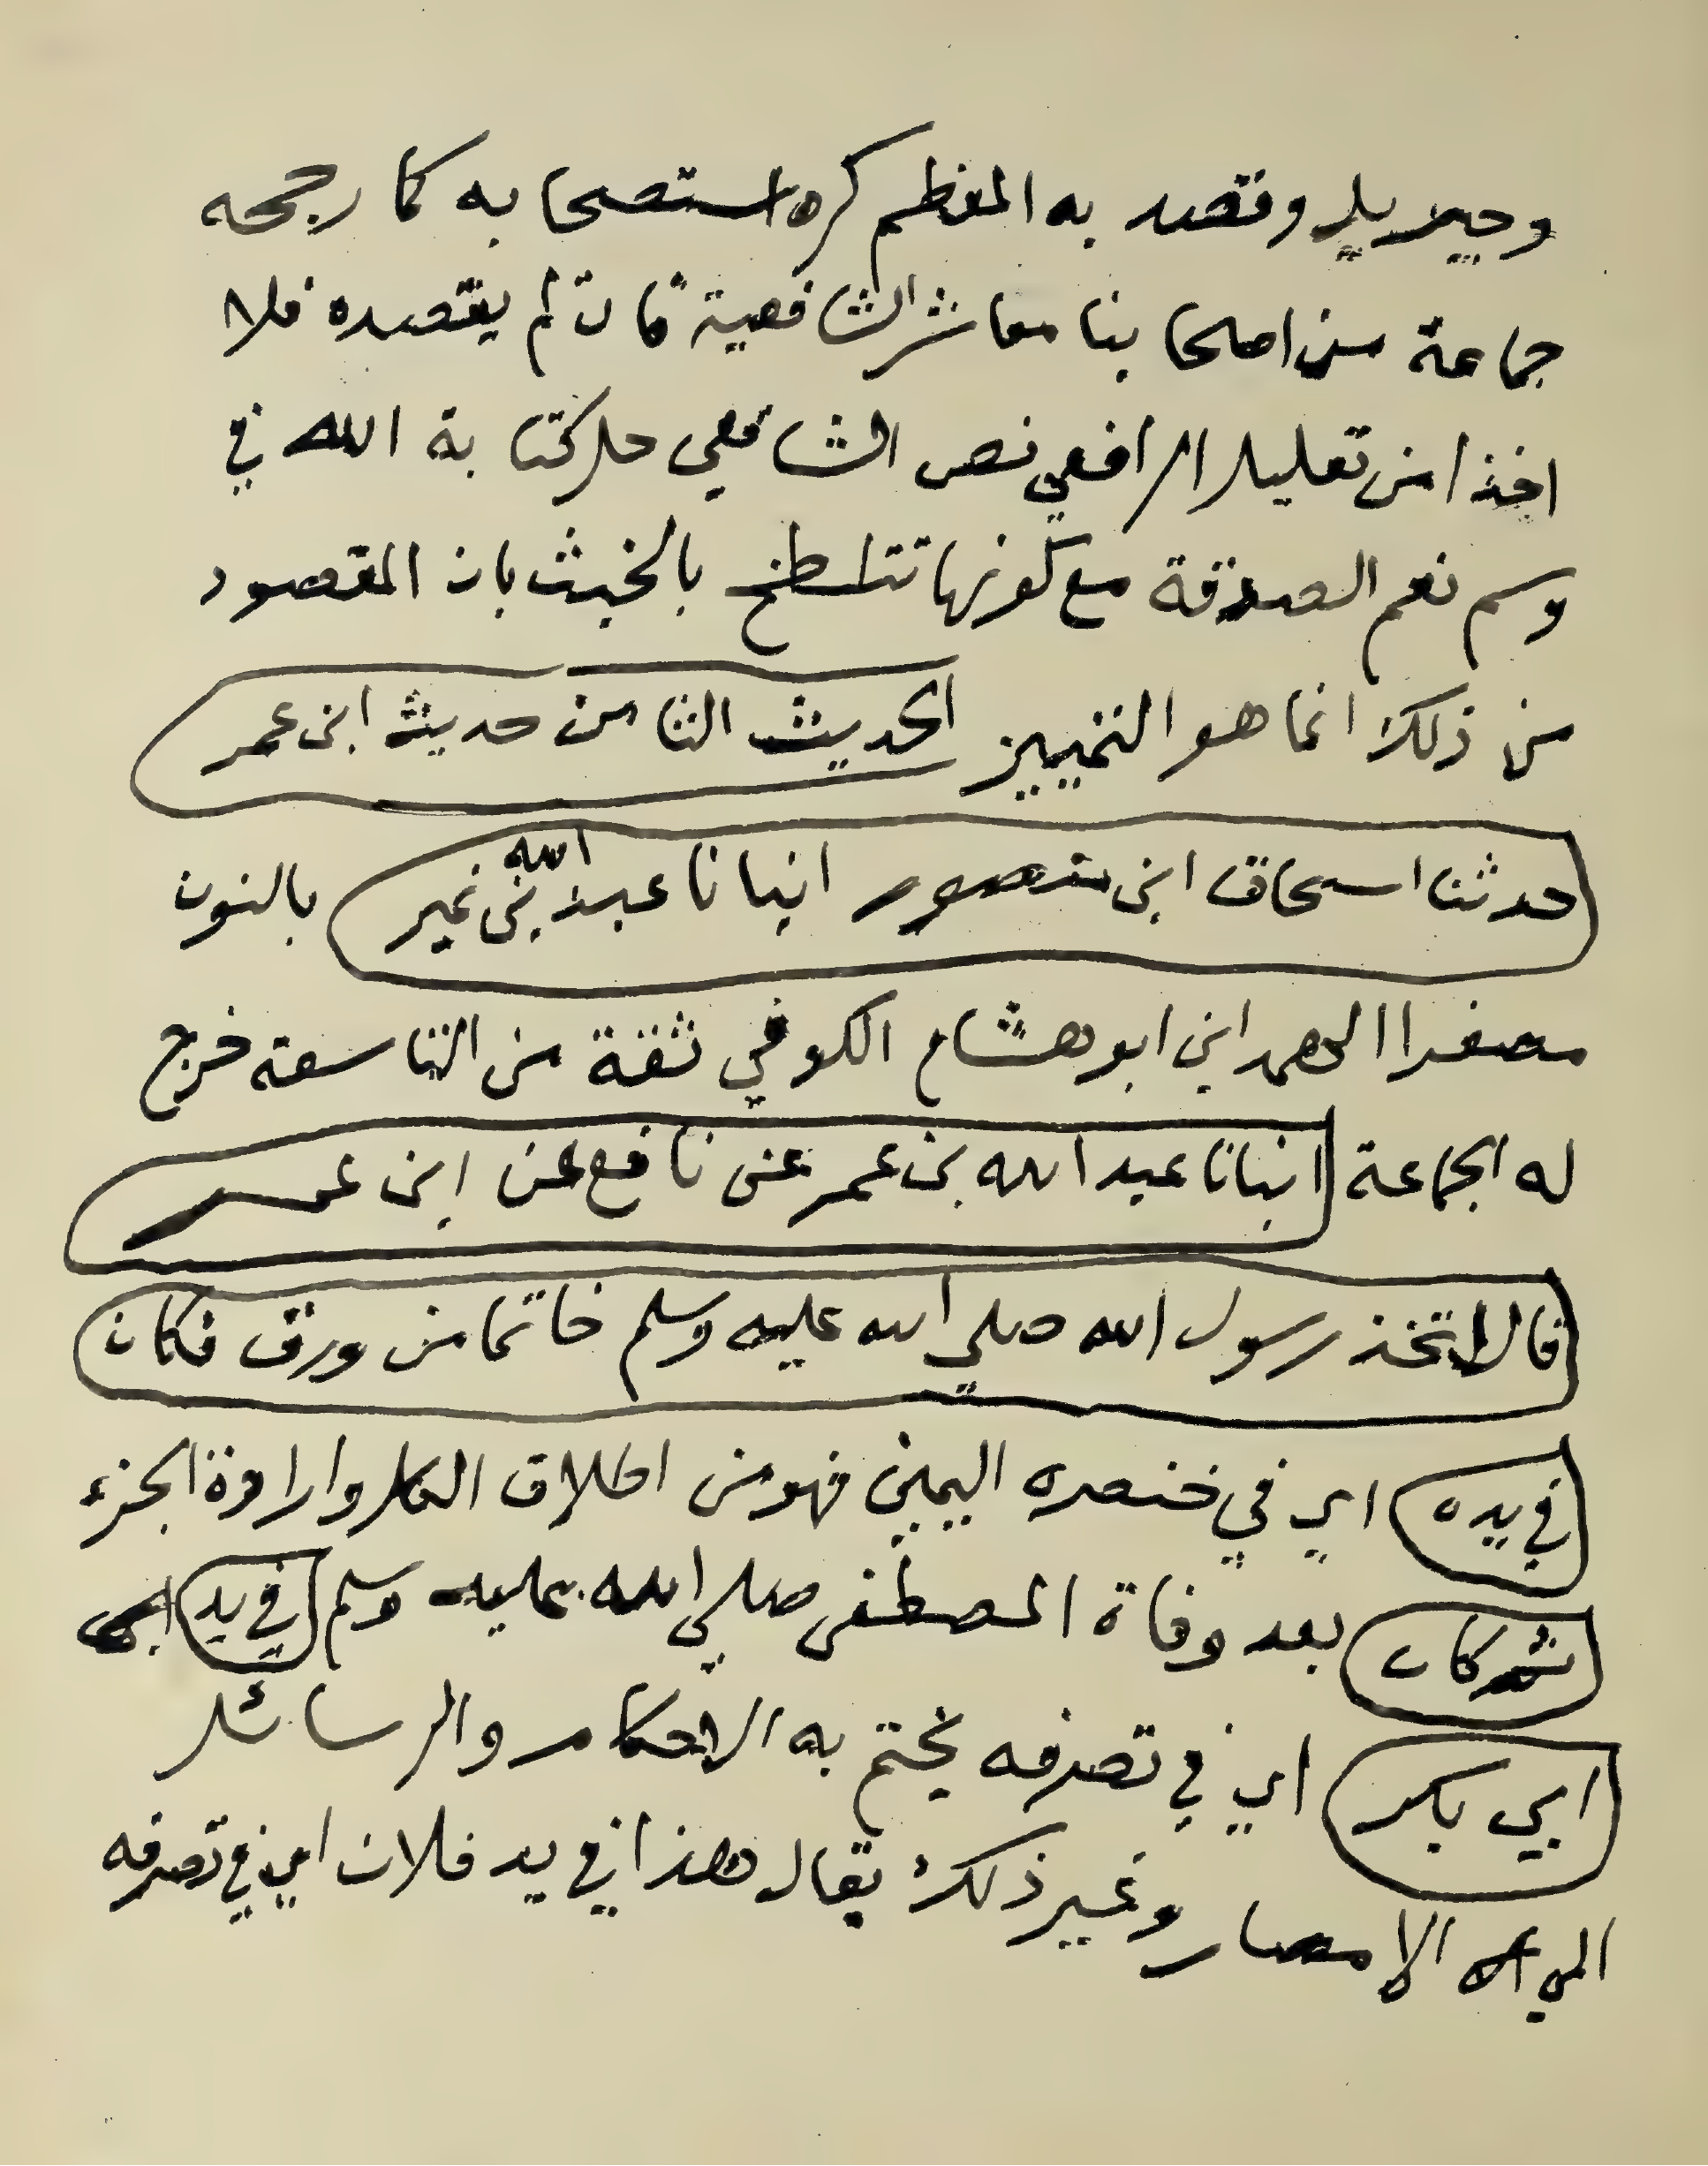 وجبريل وقصد به المعظم كره استصحابه كما رجحه
جماعة من اصحابنا معاشر الشافعية فان لم يقصده فلا
اخذا من تعليل الرافعي نص الشافعي حل كتابة الله في
وسم نعم الصدقة مع كونها تتلطخ بالخبث بان المقصود
من ذلك انما هو التمييز الحديث الثامن حديث ابن عمر
حدثنا اسحاق ابن منصور انبانا عبد الله بن نمير بالنون
مصغرا الهمداني ابو هشام الكوفي ثقة من التاسعة خرج
له الجماعة انبانا عبيد الله بن عمر عن نافع عن ابن عمر
قال اتخذ رسول الله صلي الله عليه وسلم خاتما من ورق فكان
في يده اي في خنصره اليمين فهو من اطلاق الكل وارادة الجزء
ثم كان بعد وفاة المصطفى صلي الله عليه وسلم في يد
ابي بكر اي في تصرفه يختم به الاحكام والرسائل
الي الامصار وغير ذلك يقال هذا في يد فلان اي في تصرفه